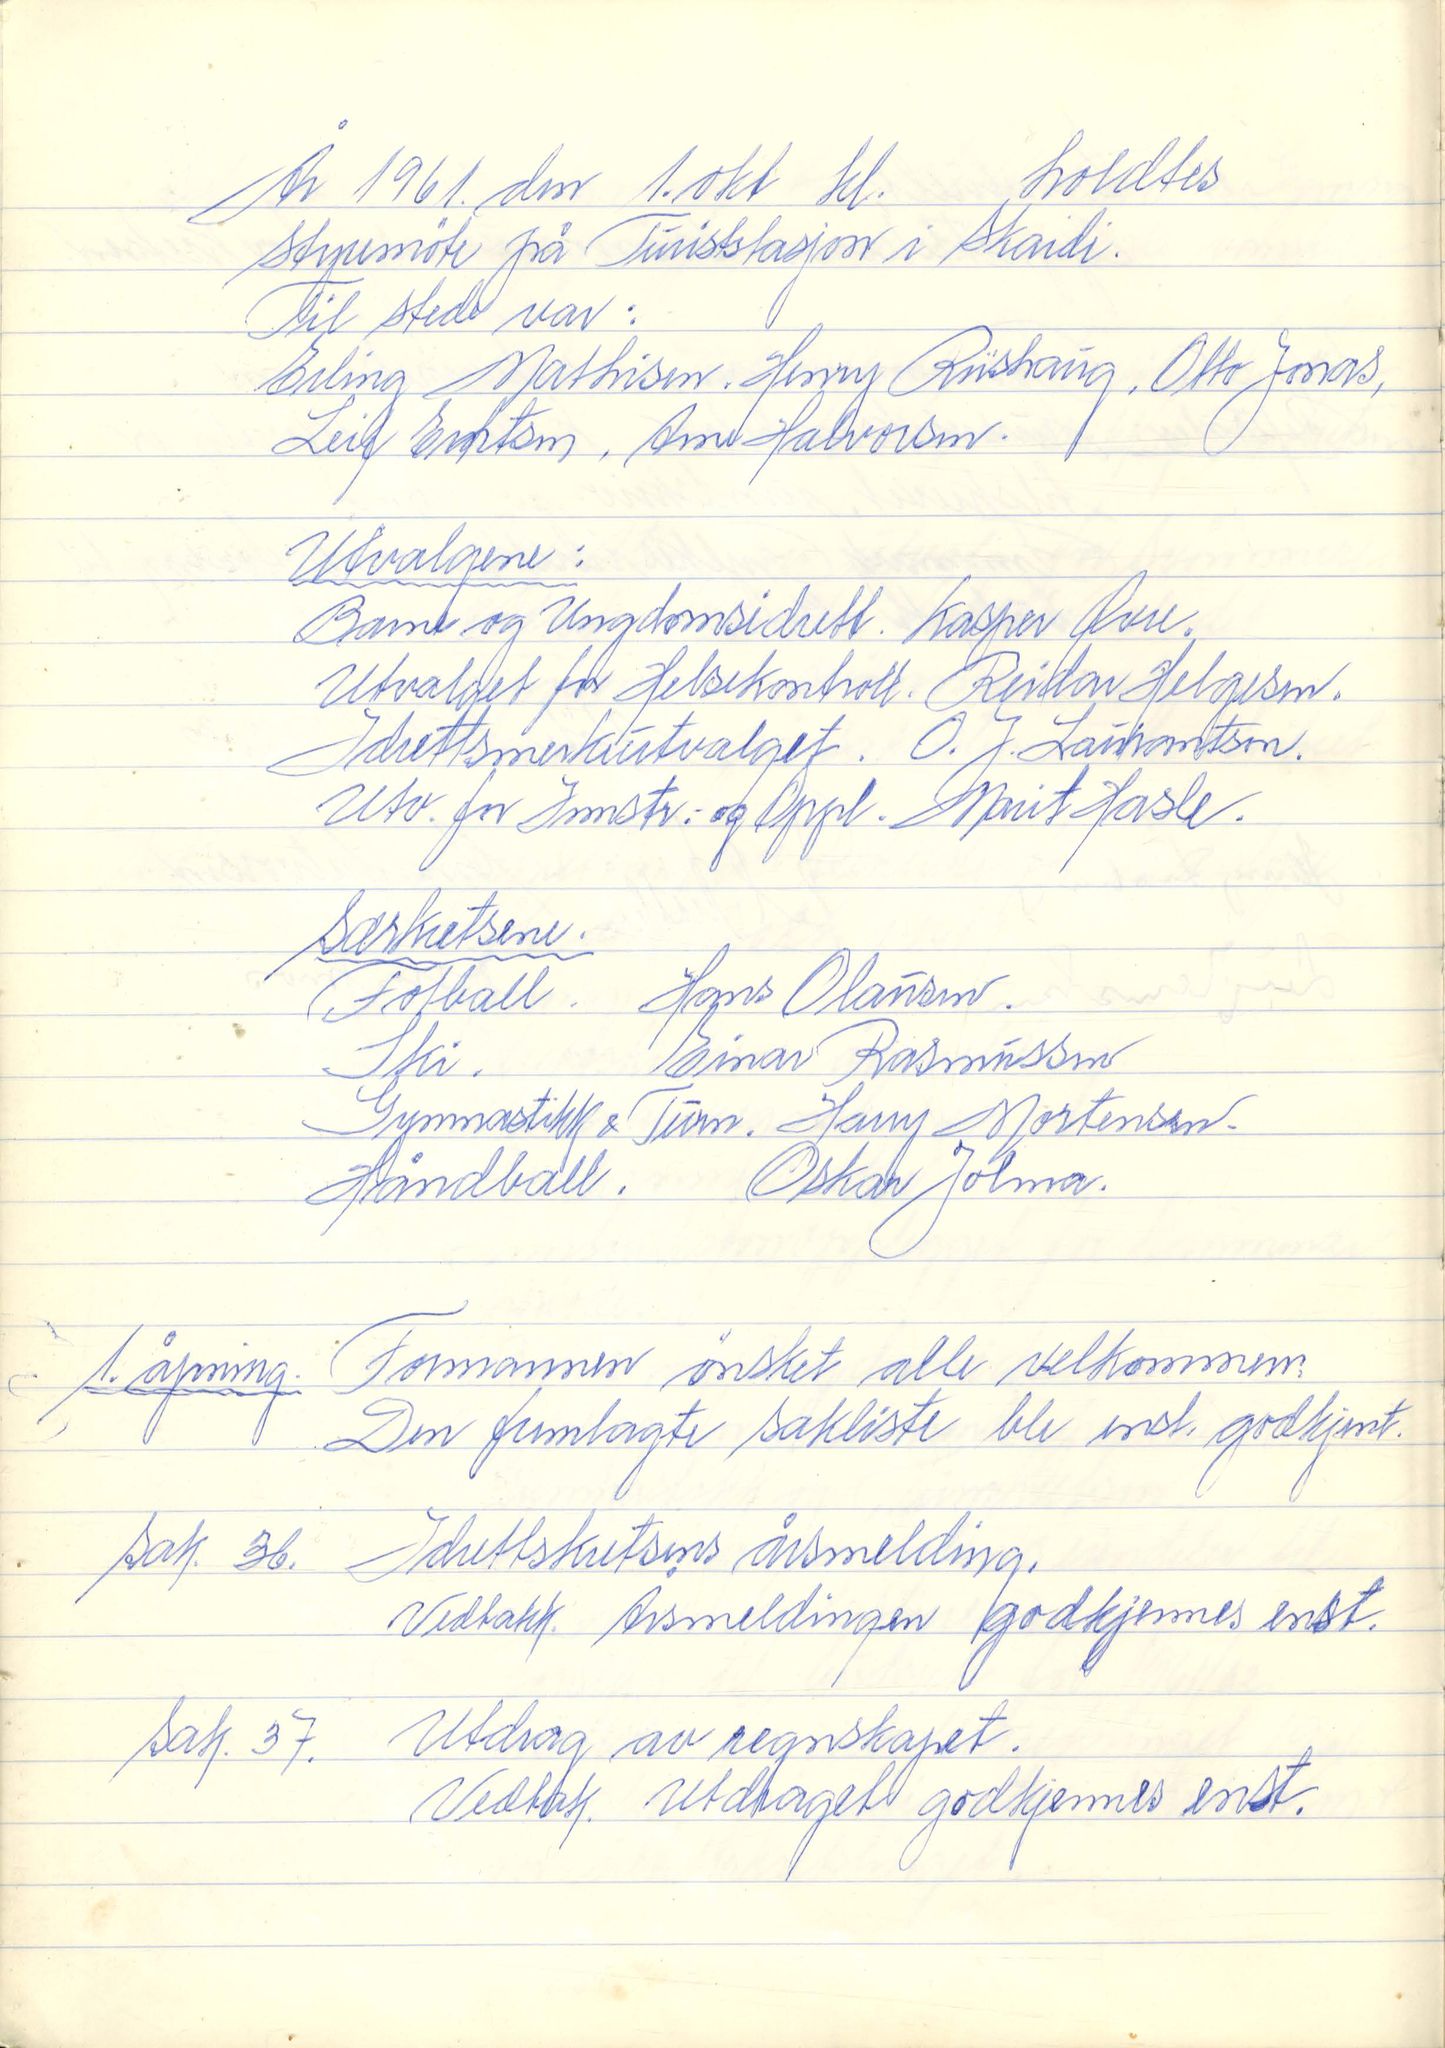 År 1961. den 1. okt kl. holdtes
styremöte på Turiststasjon i Skaidi.
Til stede var:
Erling Mathisen. Henry Riishaug, Otto Jonas,
Leif Arne Halvorsen.
Utvalgene:
Barne og Ungdomsidrett. Kasper Øvre.
Utvalget for Helsekontroll. Reidar Helgesen.
Idrettsmerkeutvalget. O. J.
Utv. for Instr. og Oppl. Marit Hasle.
Særkretsene.
Fotball. Hans Olaüsen.
Ski. Einar Rasmüssen
Gymnastikk & Türn. Harry Mortensen.
Håndball. Oskar Jolma.
1. åpning. Formannen önsket alle velkommen.
Den fremlagte sakliste ble enst. godkjent.
Sak. 36. Idrettskretsens årsmelding.
Vedtakk. Årsmeldingen godkjennes enst.
Sak. 37. Utdrag av regnskapet.
Vedtak. Utdraget godkjennes enst.